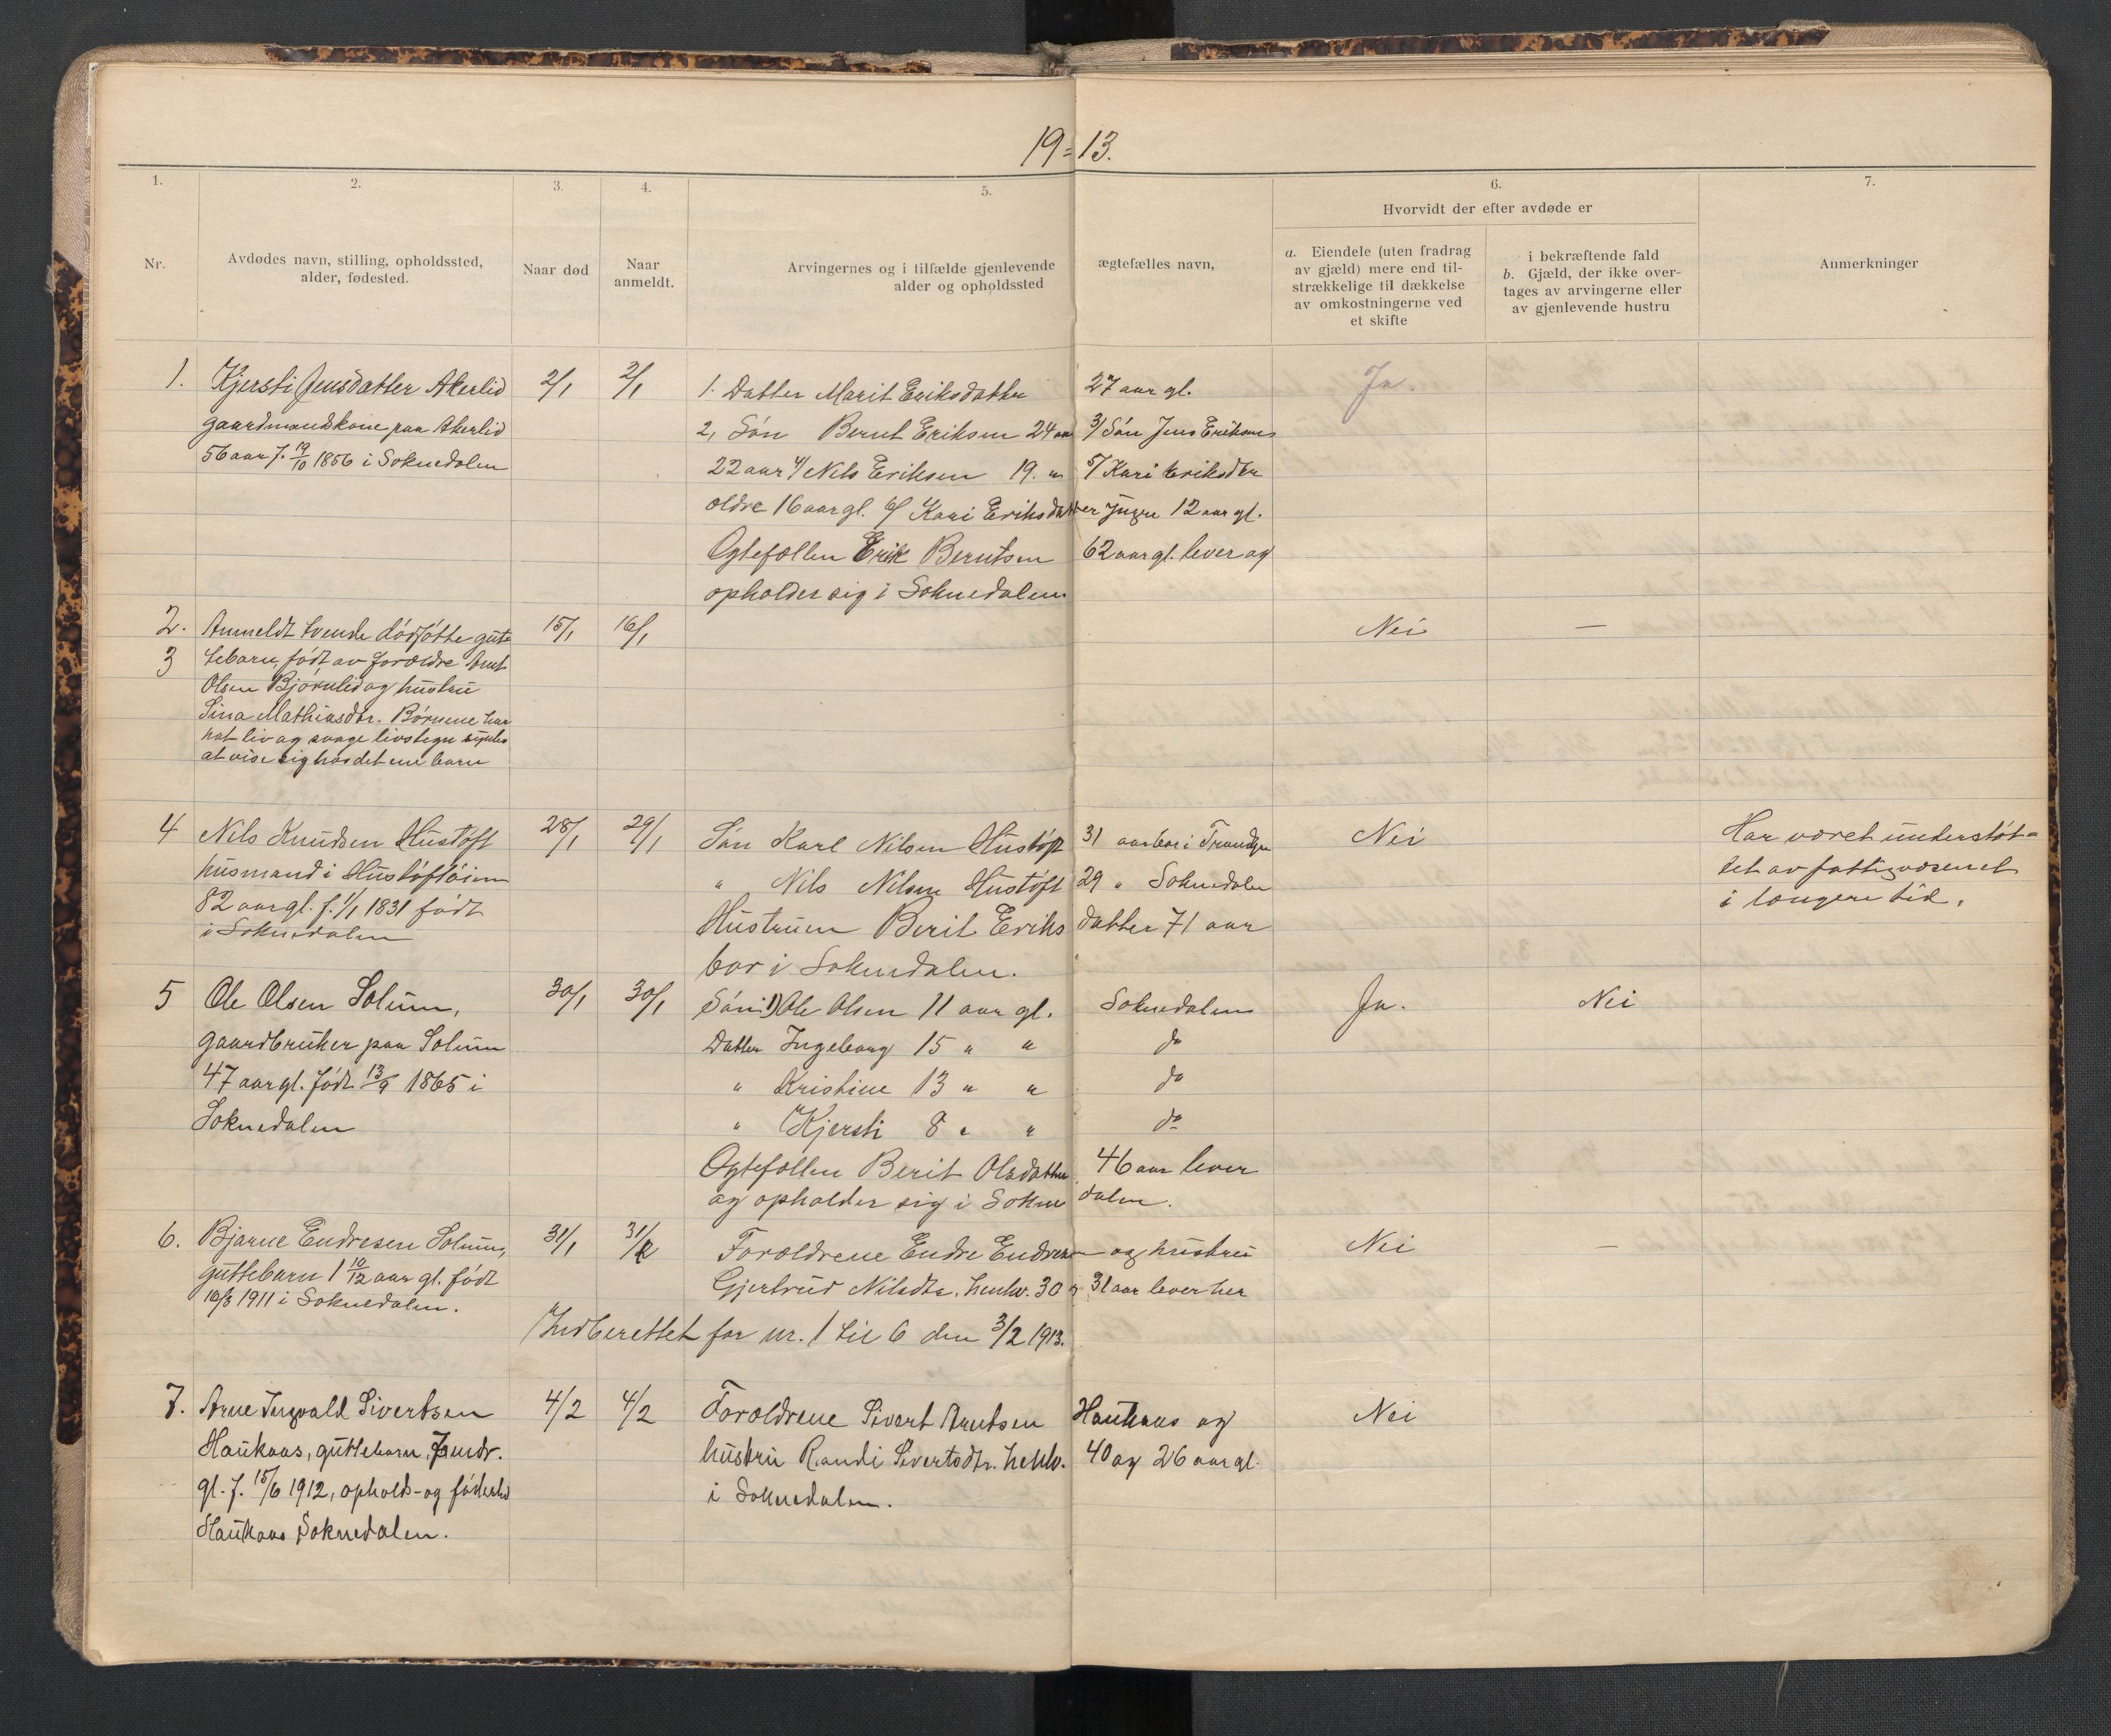 19=13.
1.
2.
3.
4.
5.
6.
7.
Nr.
Avdødes navn, stilling, opholdssted,
alder, fødested.
Naar død
Naar
anmeldt.
Arvingernes og i tilfælde gjenlevende ægtefælles navn,
alder og opholdssted
Hvorvidt der efter avdøde er
a. Eiendele (uten fradrag
av gjæld) mere end til-
strækkelige til dækkelse
av omkostningerne ved
et skifte
i bekræftende fald
b. Gjæld, der ikke over-
tages av arvingerne eller
av gjenlevende hustru
Anmerkninger
1. Kjersti Jensdatter Akerlid 2/1 2/1
gaardmandskone paa Akerlid
56 aar f. 19/10 1856 i Soknedalen
1. Datter Marit Eriksdatter 27 aar gl. Ja.
2, Søn Bernt Eriksen 24 aar 3/ Søn Jens Eriksen
22 aar 4/ Nils Eriksen 19. " 5/ Kari Eriksdtr
ældre 16 aar gl. 6/ Kari Eriksdatter yngre 12 aar gl.
Ægtefællen Erik Berntsen 62 aar gl. lever og
opholder sig i Soknedalen
2. Anmeldt tvende dødføtte gut- 15/1 16/1 Nei —
3 tebarn, født av forældre Arnt
Olsen Bjørnlid og hustru
Sina Mathiasdtr. Børnene har
hat liv og svage livstegn syntes
at vise sig hos det ene barn
4 Nils Knudsen Hustøft 28/1 29/1
husmand i Hustøftøien
82 aar gl. f. 1/1 1831 født
i Soknedalen
Søn Karl Nilsen Hustøft 31 aar bor i Trondhjm Nei
" Nils Nilsen Hustøft 29 " Soknedalen
Hustruen Berit Eriksdatter 71 aar
bor i Soknedalen.
Har været understøt-
tet av fattigvæsenet
i længere tid.
5 Ole Olsen Solum, 30/1 30/1
gaardbruker paa Solum
47 aar gl. født 13/9 1865 i
Soknedalen
Søn: 1) Ole Olsen 11 aar gl. Soknedalen Ja. Nei
Datter Ingeborg 15 " " do
" Kristine 13 " " do
" Kjersti 8 " " do
Ægtefællen Berit Olsdatter 46 aar lever
og opholder sig i Soknedalen.
6. Bjarne Endresen Solum, 31/1 31/1
guttebarn 1 10/12 aar gl. født
10/3 1911 i Soknedalen.
Forældrene Endre Endresen og hustru Nei —
Gjertrud Nilsdtr. henhv. 30 og 31 aar lever her
Indberettet for nr. 1 til 6 den 3/2 1913.
7. Arne Ingvald Sivertsen 4/2 4/2
Haukaas, guttebarn, 7 mdr.
gl. f. 15/6 1912, opholds- og fødested
Haukaas Soknedalen.
Forældrene Sivert Arntsen Haukaas og Nei
hustru Randi Sivertsdtr. hehhv. 40 og 26 aar gl.
i Soknedalen.